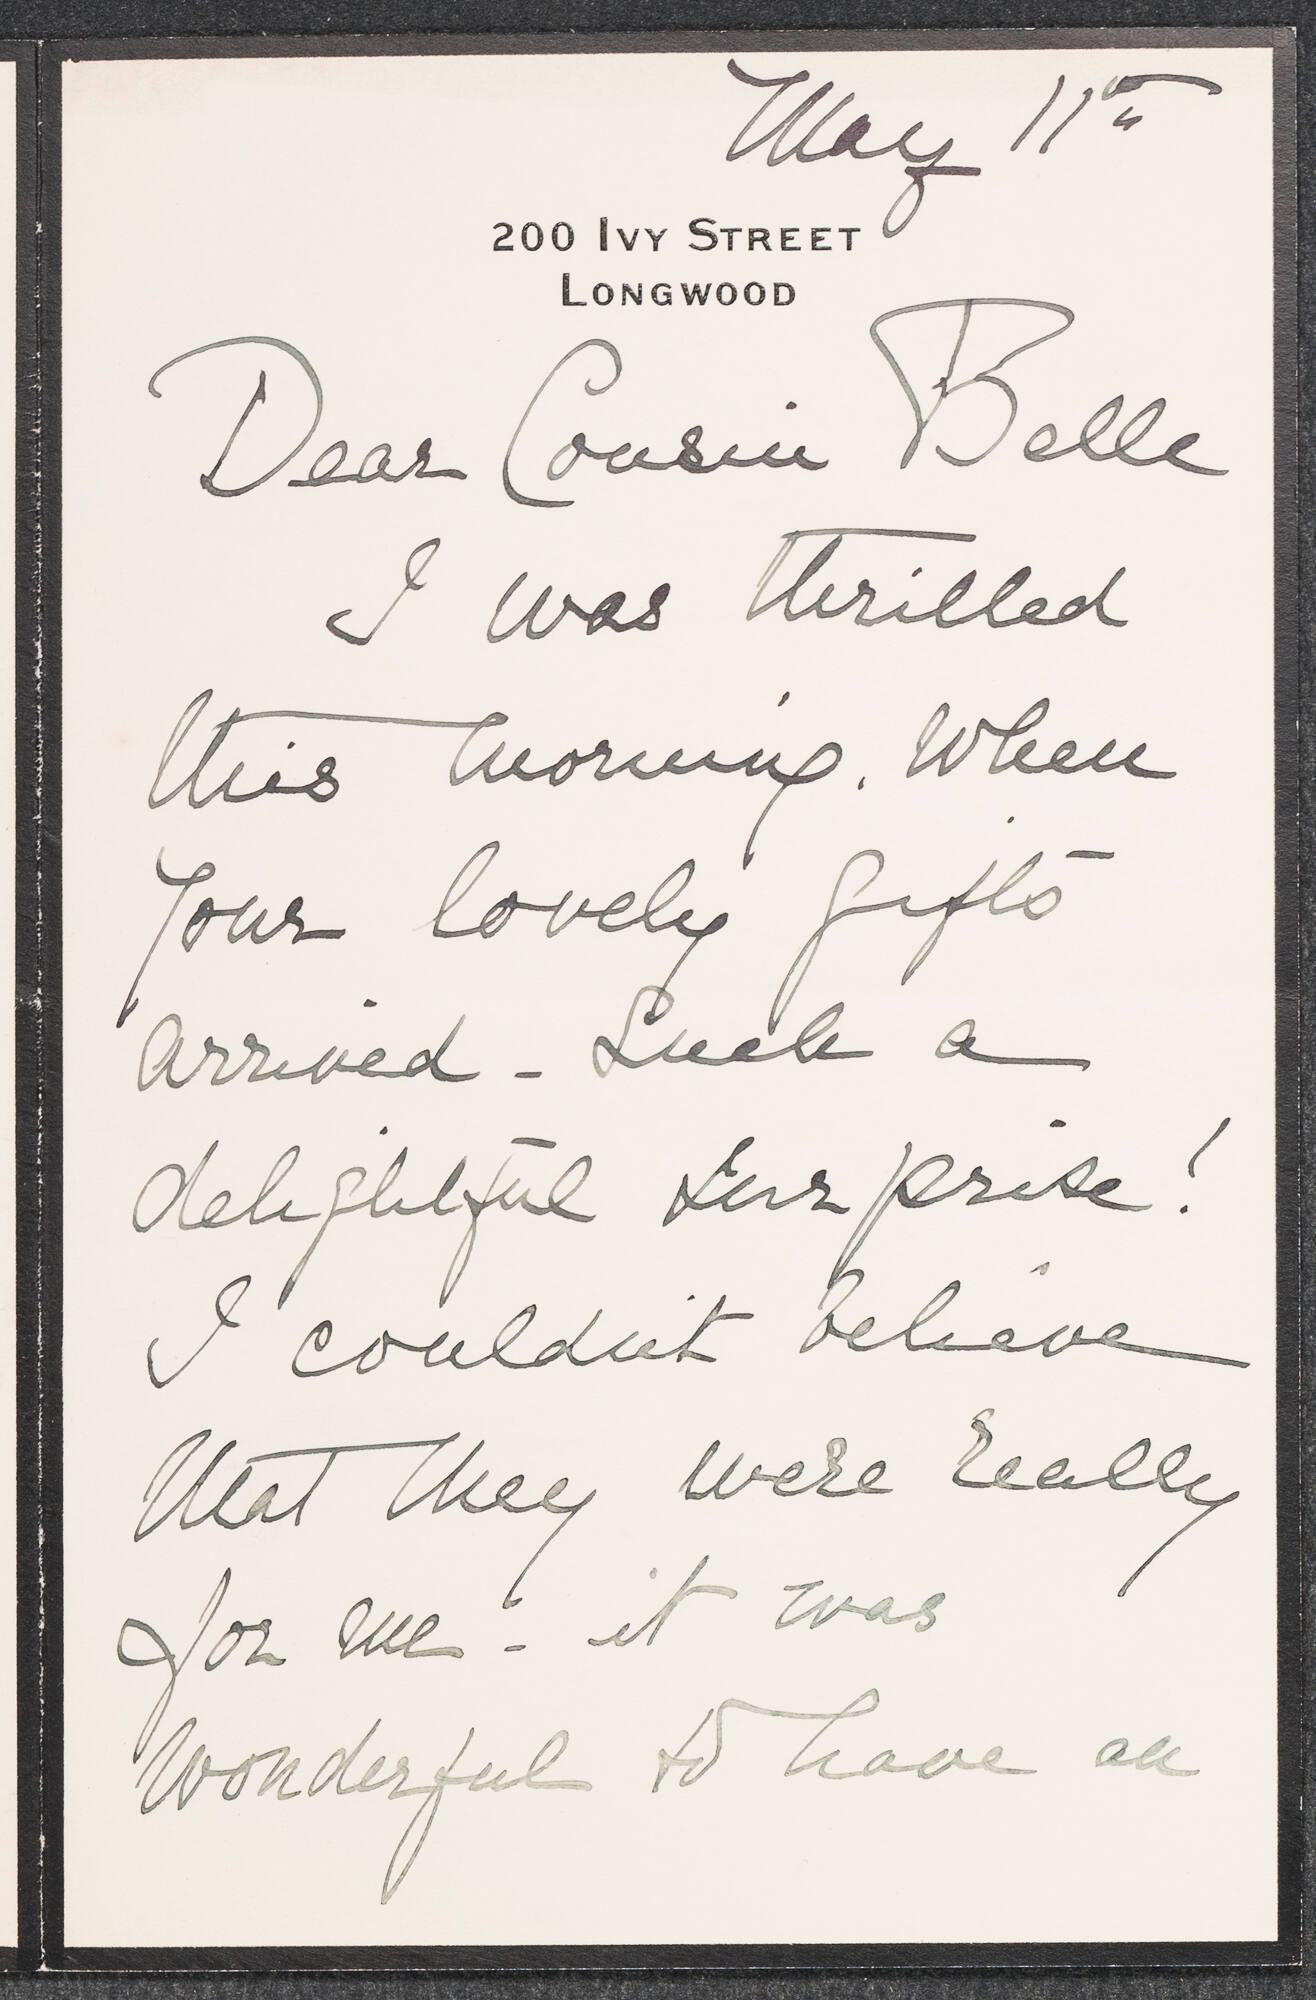 May 11th
200 IVY STREET
LONGWOOD
Dear Cousin Belle
I was thrilled
this morning. When
your lovely gifts
arrived - Such a
delightful surprise!
I couldn't believe
that they were really
for me - it was
wonderful to have an